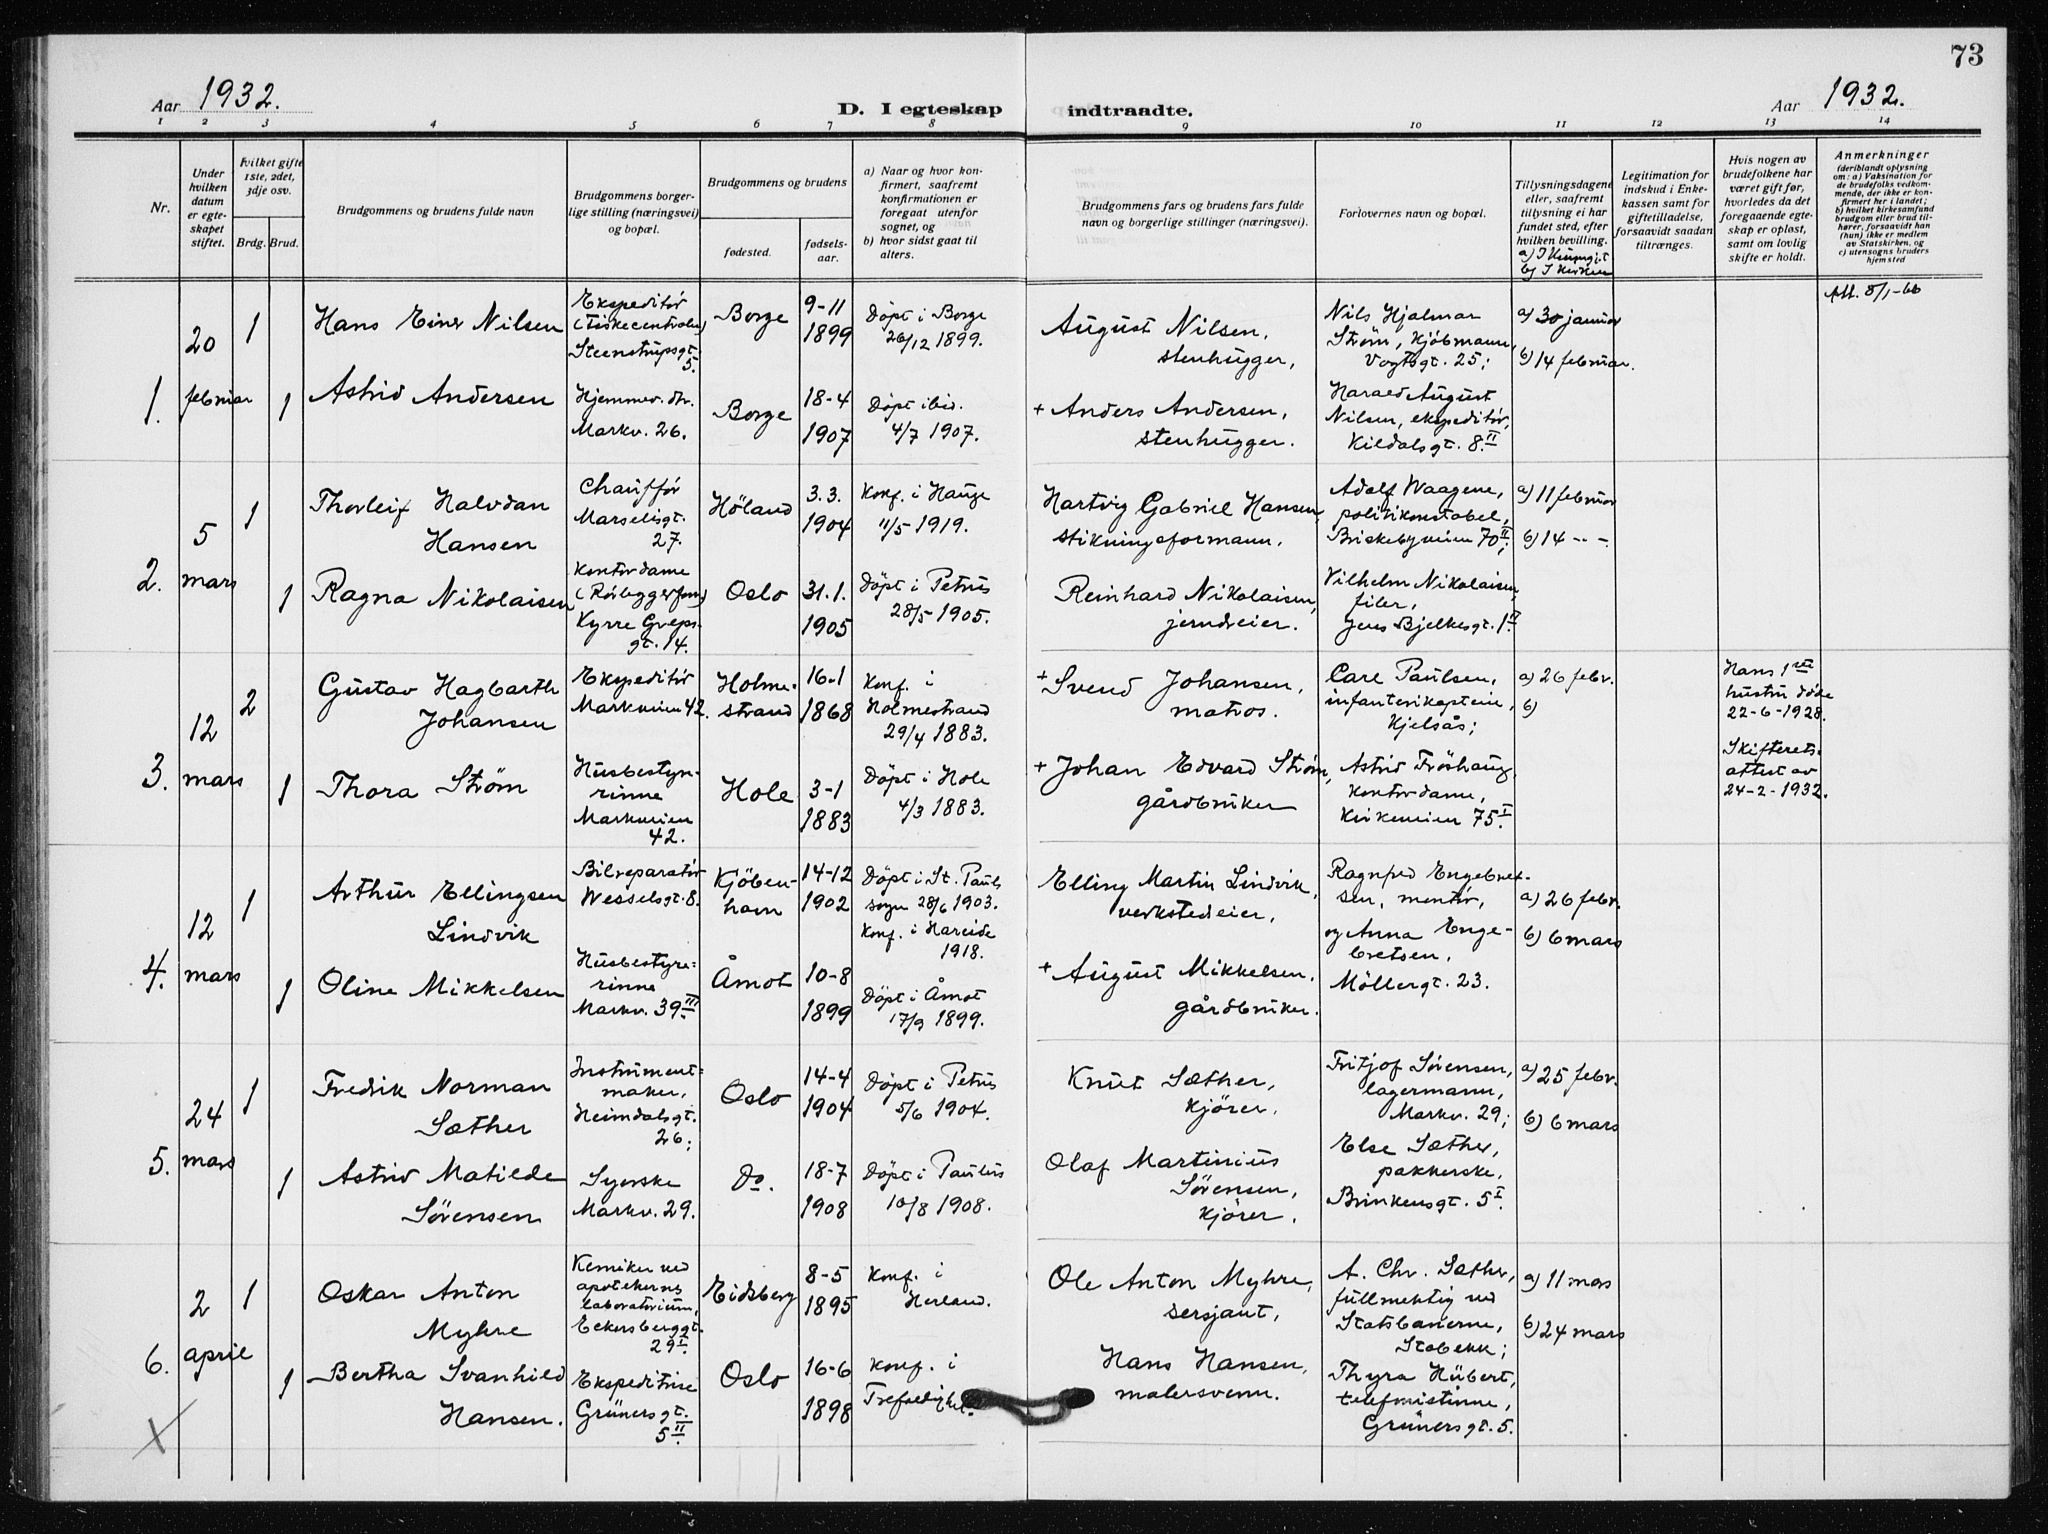 73
Aar 1932.
D. I egteskap indtraadte.
Aar 1932.
1 2 3 4 5 6 7 8 9 10 11 12 13 14
Nr.
Under
hvilken
datum
er egte-
skapet
stiftet.
Hvilket gifte
1ste, 2det,
3dje osv.
Brdg. Brud.
Brudgommens og brudens fulde navn
Brudgommens borger-
lige stilling (næringsvei)
og bopæl.
Brudgommens og brudens
fødested.
fødsels-
aar.
a) Naar og hvor kon-
firmert, saafremt
konfirmationen er
foregaat utenfor
sognet, og
b) hvor sidst gaat til
alters.
Brudgommens fars og brudens fars fulde
navn og borgerlige stillinger (næringsvei).
Forlovernes navn og bopæl.
Tillysningsdagene
eller, saafremt
tillysning ei har
fundet sted, efter
hvilken bevilling.
b) I kirken
Legitimation for
indskud i Enke-
kassen samt for
giftetilladelse,
forsaavidt saadan
tiltrænges.
Hvis nogen av
brudefolkene har
været gift før,
hvorledes da det
foregaaende egte-
skap er opløst,
samt om lovlig
skifte er holdt.
Anmerkninger
(deriblandt oplysning
om: a) Vaksination for
de brudefolks vedkom-
mende, der ikke er kon-
firmert her i landet;
b) hvilket kirkesamfund
brudgom eller brud til-
hører, forsaavidt han
(hun) ikke er medlem
av Statskirken, og
c) utensogns bruders
hjemsted
1.
20
februar
1
Hans Einer Nilsen
Ekspeditør
(Fiskecentralen)
Steenstrupsgt.
5.
Borge
9-11
1899
Döpt i Borge
26/12 1899.
August Nilsen,
stenhugger,
Nils Hjalmar
Strøm, Kjöbmann,
Vogtsgt. 25;
a) 30 januar
b) 14 februar.
Att. 8/1-66
1
Astrid Andersen
Hjemmev. dtr.
Markv. 26.
Borge
18-4
1907
Döpt ibid.
4/7 1907.
+ Anders Andersen,
stenhugger.
Harald August
Nilsen, ekspeditör,
Kildalsgt. 8.II
2.
5
mars
1
Thorleif Halvdan
Hansen
Chauffør
Marselisgt.
27.
Höland
3.3.
1904
Konf. i Hauge
11/5 1919.
Hartvig Gabriel Hansen,
stikningsformann.
Adolf Waagene,
politikonstabel,
Briskebyveien 70II;
a) 11 februar
b) 14 -- -.
1
Ragna Nikolaisen
Kontordame
Kyrre Greps-
gt. 14.
Oslo
31.1.
1905
Döpt i Petrus
28/5 1905.
Reinhard Nikolaisen,
jerndreier.
Vilhelm Nikolaisen,
filer,
Jens Bjelkesgt. 1II.
3.
12
mars
2
Gustav Hagbarth
Johansen
Ekspeditør
Markveien 42.
Holme-
strand
16-1
1868
Konf. i
Holmestrand
29/4 1883.
+ Svend Johansen,
matros.
Care Paulsen,
infanterikaptein,
Kjelsås;
a) 26 febr.
b)
Hans 1ste
hustru döde
22-6-1928.
Skifterets-
attest av
24-2-1932.
1
Thora Strøm
Husbestyr-
rinne
Markveien
42.
Hole
3-1
1883
Döpt i Hole
4/3 1883.
+ Johan Edvard Strøm,
gårdbruker
Astrid Fröshaug,
kontordame,
Kirkeveien 75I.
4.
12
mars
1
Arthur Ellingsen
Lindvik
Bilreparatør
Wesselsgt. 8.
Kjöben-
havn
14-12
1902
Döpt i St. Pauls
sogn 28/6 1903.
Konf. i Hareide
1918.
Elling Martin Lindvik,
verkstedeier,
Ragnfred Engebret-
sen, montör,
og Anna Enge-
bretsen,
Möllergt. 23.
a) 26 febr.
b) 6 mars
1
Oline Mikkelsen
Husbestyre-
rinne
Markv. 39III.
Åmot
10-8
1899
Döpt i Åmot
17/9 1899.
+ August Mikkelsen,
gårdbruker.
5.
24
mars
1
Fredrik Norman
Sæther
Instrument-
maker,
Heimdalsgt.
26;
Oslo
14-4
1904
Döpt i Petrus
5/6 1904.
Knut Sæther,
kjörer.
Fritjof Sörensen,
lagermann,
Markv. 29;
a) 25 febr.
b) 6 mars
1
Astrid Matilde
Sörensen
Syerske
Markv. 29.
Do.
18-7
1908
Döpt i Paulus
10/8 1908.
Olaf Martinius
Sörensen,
kjörer.
Else Sæther,
pakkerske,
Brinkensgt. 5I.
6.
2
april
1
Oskar Anton
Myhre
Kemiker ved
apotekernes
laboratorium,
Eckersberggt.
29I.
Eidsberg
8-5
1895
Konf. i
Herland.
Ole Anton Myhre,
sersjant,
A. Chr. Sæther,
fullmektig ved
Statsbanerne,
Stabekk;
a) 11 mars
b) 24 mars
1
Bertha Svanhild
Hansen.
Ekspeditrise
Grünersgt.
5II.
Oslo
16-6
1898
Konf. i
Trefoldighet.
Hans Hansen,
malersvenn.
Thyra Hübert,
telefonistinne,
Grünersgt. 5.
X